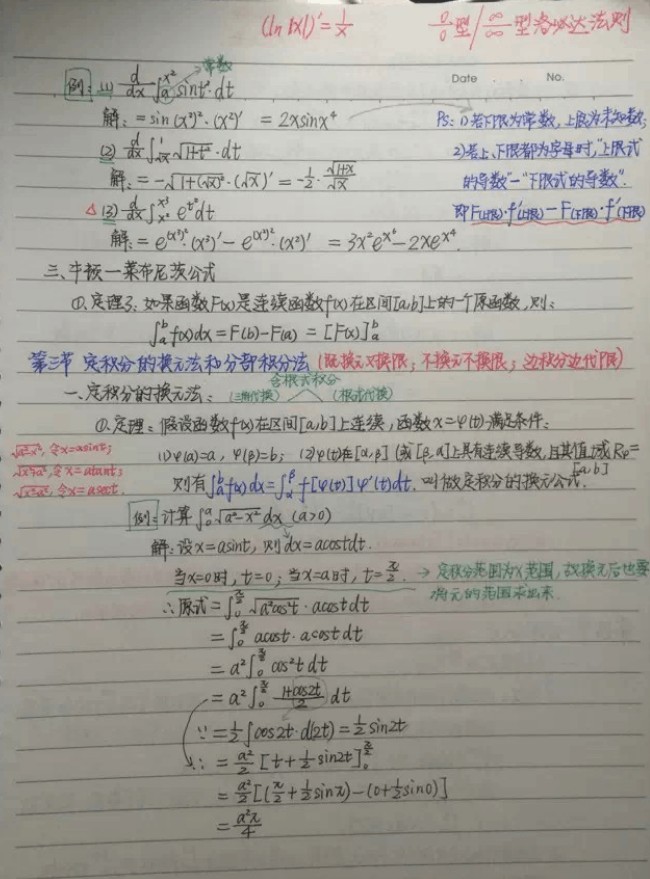 (ln|x|)′=1/x　0/0型/∞/∞型洛必达法则
常数
Date　No.
例：(1) d/dx ∫ₐ^(x²) sint²·dt
解：=sin(x²)²·(x²)′ =2xsinx⁴　PS：1)若下限为常数，上限为未知数；
(2) d/dx ∫_(√x)^1 √(1+t²)·dt　2)若上、下限都为字母时，“上限式
解：=-√(1+(√x)²)·(√x)′=-1/2·√(1+x)/√x　的导数”-“下限式的导数”.
△ (3) d/dx ∫_(x²)^(x³) e^(t²)dt　即F(上限)·f′(上限)-F(下限)·f′(下限)
解：=e^((x³)²)·(x³)′-e^((x²)²)·(x²)′ =3x²e^(x⁶)-2xe^(x⁴).
三、牛顿—莱布尼茨公式
①.定理3：如果函数F(x)是连续函数f(x)在区间[a,b]上的一个原函数，则：
∫ₐᵇ f(x)dx=F(b)-F(a)=[F(x)]ₐᵇ
第三节 定积分的换元法和分部积分法 (既换元又换限；不换元不换限；边积分边代限)
含根式积分
一、定积分的换元法：　(三角代换)　(根式代换)
①.定理：假设函数f(x)在区间[a,b]上连续，函数x=φ(t)满足条件：
√(a²-x²)，令x=asint；
(1)φ(α)=a，φ(β)=b；(2)φ(t)在[α,β](或[β,α]上具有连续导数，且其值域Rφ=[a,b]
√(x²+a²)，令x=atant；
则有∫ₐᵇ f(x)dx=∫_α^β f[φ(t)]φ′(t)dt. 叫做定积分的换元公式.
√(x²-a²)，令x=asect.
例：计算∫₀ᵃ √(a²-x²) dx (a>0)
解：设x=asint，则dx=acostdt.
当x=0时，t=0；当x=a时，t=π/2.　→ 定积分范围为x范围，故换元后也要
将元的范围求出来.
∴原式=∫₀^(π/2) √(a²cos²t)·acostdt
=∫₀^(π/2) acost·acostdt
=a²∫₀^(π/2) cos²tdt
=a²∫₀^(π/2) (1+cos2t)/2 dt
∵=1/2∫cos2t·d(2t)=1/2sin2t
∴=a²/2[t+1/2sin2t]₀^(π/2)
=a²/2[(π/2+1/2sinπ)-(0+1/2sin0)]
=a²π/4